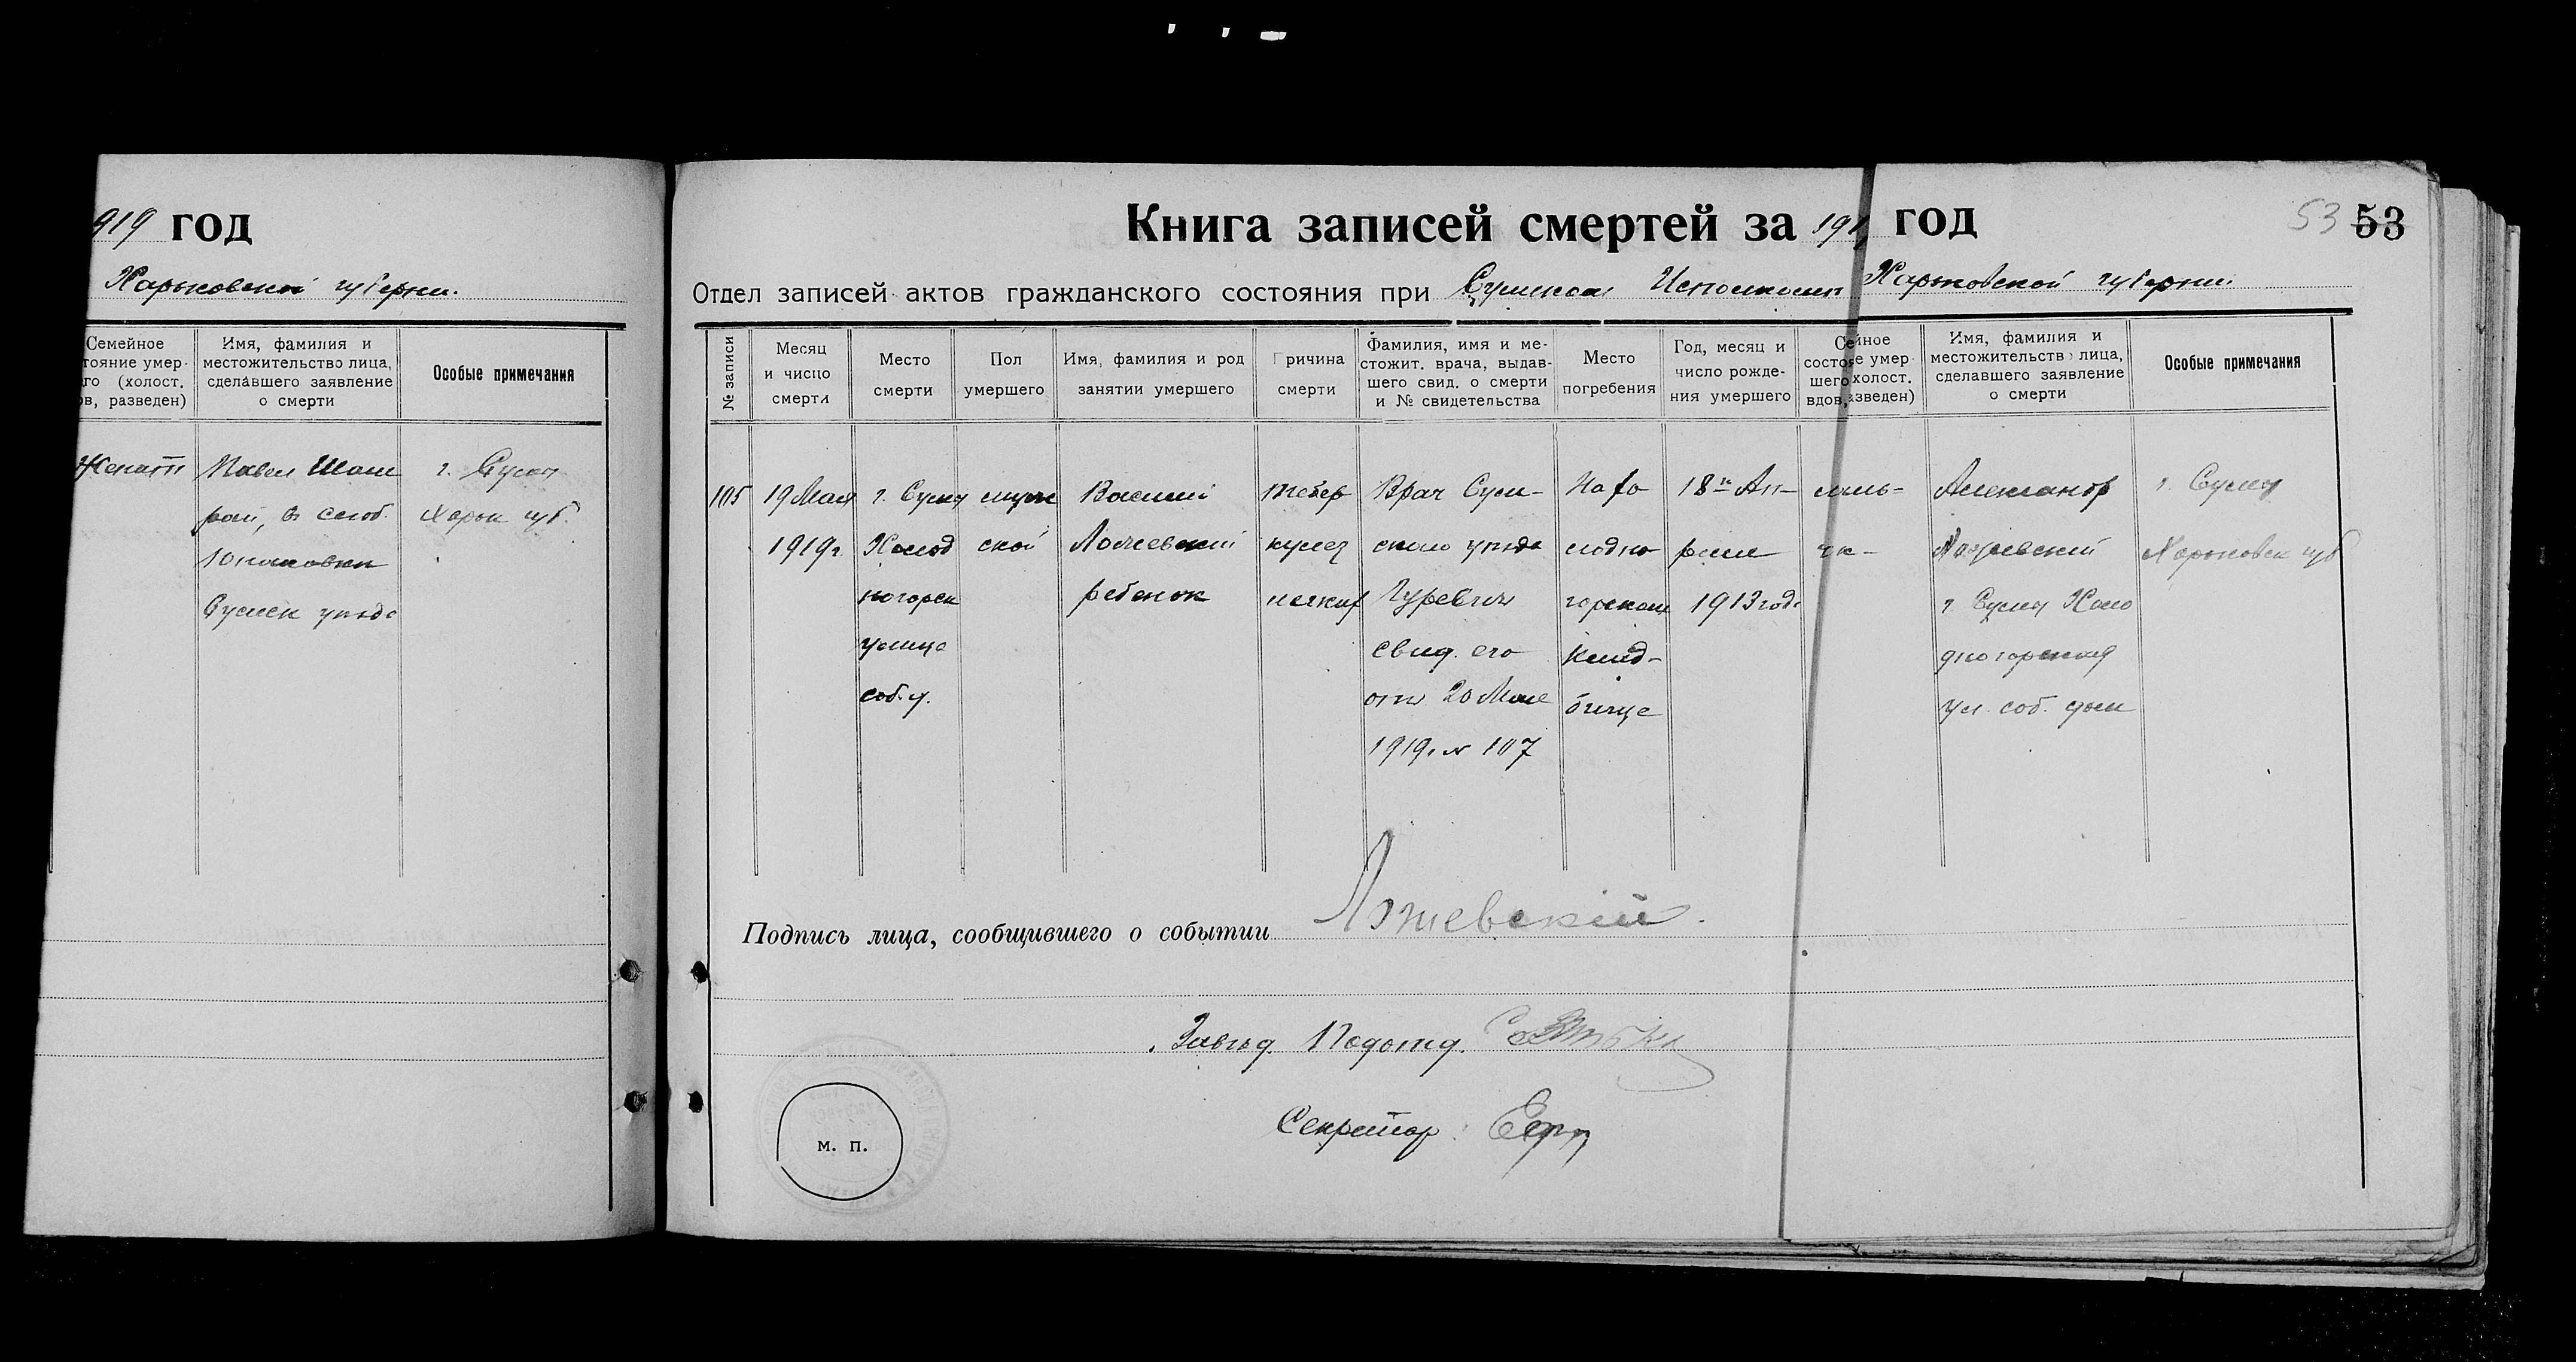 919 год
Харьковской губерни.
Семейное
тояние умер-
го (холост,
ов, разведен)
Имя, фамилия и
местожительство лица,
сделавшего заявление
о смерти
Особые примечания
Женатъ
Павел Шаш
рай, в слоб.
Юнаковки
Сумск уѣзда
г. Сумы
Харьк губ.
Книга записей смертей за 191 год
53 53
Отдел записей актов гражданского состояния при Сумском Исполкоме Харьковской губернии
№ записи
Месяц
и число
смерти
Место
смерти
Пол
умершего
Имя, фамилия и род
занятии умершего
Причина
смерти
Фамилия, имя и ме-
стожит. врача, выдав-
шего свид. о смерти
и № свидетельства
Место
погребения
Год, месяц и
число рожде-
ния умершего
Се йное
состоя е умер-
шего холост.
вдов, азведен)
Имя, фамилия и
местожительство лица,
сделавшего заявление
о смерти
Особые примечания
105
19 Мая
1919 г.
г. Сумы
Холод
ногорск
улица
соб. д.
мужс
ской
Василий
Ложевский
ребенок
тубер
кулез
Врач Сум-
ского уѣзда
Гуревич
свид. его
отъ 20 Мая
1919 г. № 107
На Хо
лодно
горском
клад-
бище
18го Ап-
реля
1913 года
маль-
чик-
Александр
Ложевский
г. Сумы Холо
дногорская
ул. соб. дом
г. Сумы
Харьковск губ
Подпись лица, сообщившего о событии Ложевский.
Завѣд. Подотд.
Секретарь
м. п.